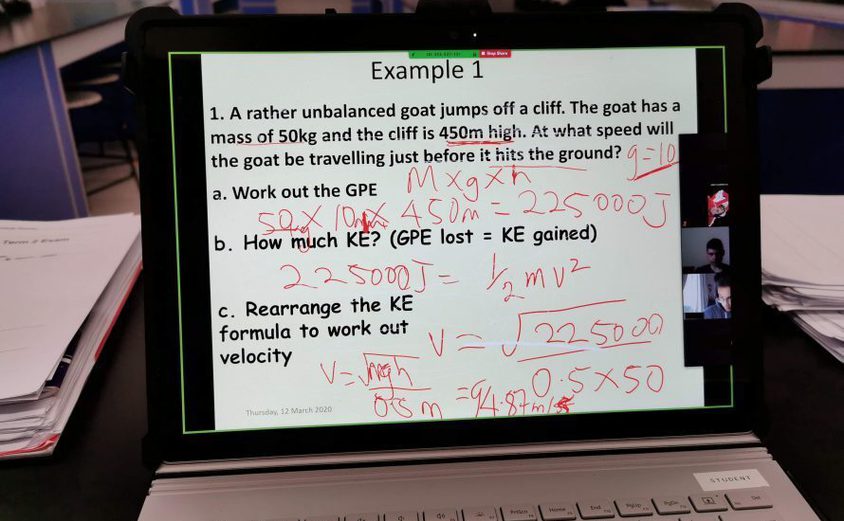 Stop Share
Example 1
1. A rather unbalanced goat jumps off a cliff. The goat has a
mass of 50kg and the cliff is 450m high. At what speed will
the goat be travelling just before it hits the ground? g=10
a. Work out the GPE M x g x h
50kg X 10 X 450m = 225000J
b. How much KE? (GPE lost = KE gained)
225000J = 1/2 mv²
c. Rearrange the KE
formula to work out
velocity
V = √225000
0.5 X 50
V = √mgh
0.5 m = 94.87m/s
Thursday, 12 March 2020
STUDENT
Home
End
PgUp
PgDn
Del